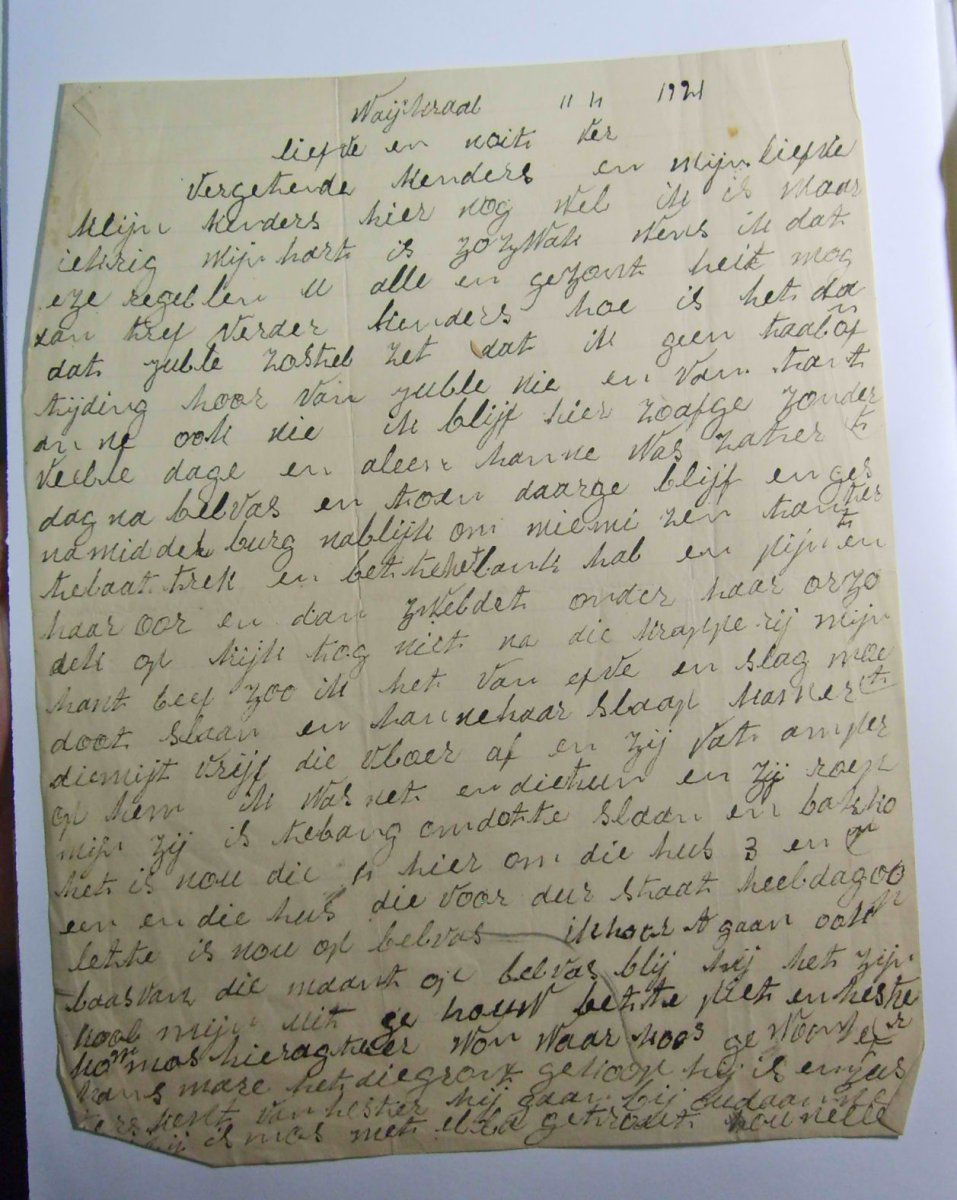 Waijkraal 11 11 1921
liefve en noit ver
vergetende kenders en mijn liefve
klijn kenders hier nog wel ik is maar
mijn hart is zozwak wens ik dat
eze regellen u alle en gezont heit mog
aan tref verder kenders hoe is het da
dat julle zostel zet dat ik geen taal of
tijding hoor van julle nie en van tant
an na ook nie ik blijf hier zoafge zonder
veele dage en aleen hanne was zater
dag na belvas en toen daarge blijf en ges
namiddelburg nablijk om miemi zen tan
tebaat trek en bet hab en pijn en
haar oor en dan zweldet onder haar orzo
dek op kijk tog niet na die krapperij mijn
hant beef zoo ik het van efve en slag moe
doot slaan en hannehaar slaap kamer
diemijt vrijf die vloer af en zij vat amper
op hem ik was net endiekun en zij roep
mijn zij is tebang omdotte slaan en
het is nou die 4 hier om die hus 3 en
een en die hus die voor dur staat heeldagoo
lette is nou op belvas ik hoor gaan ook
baasvan die maant op belvas blij hij het zijn
kool mijn uit ge houw bette piet en hester
mos hieragter won waar koos ge woon
hans mare het diegront gekoop hij is en
kent van hester hij gaan bij
mos met ella getrout nou